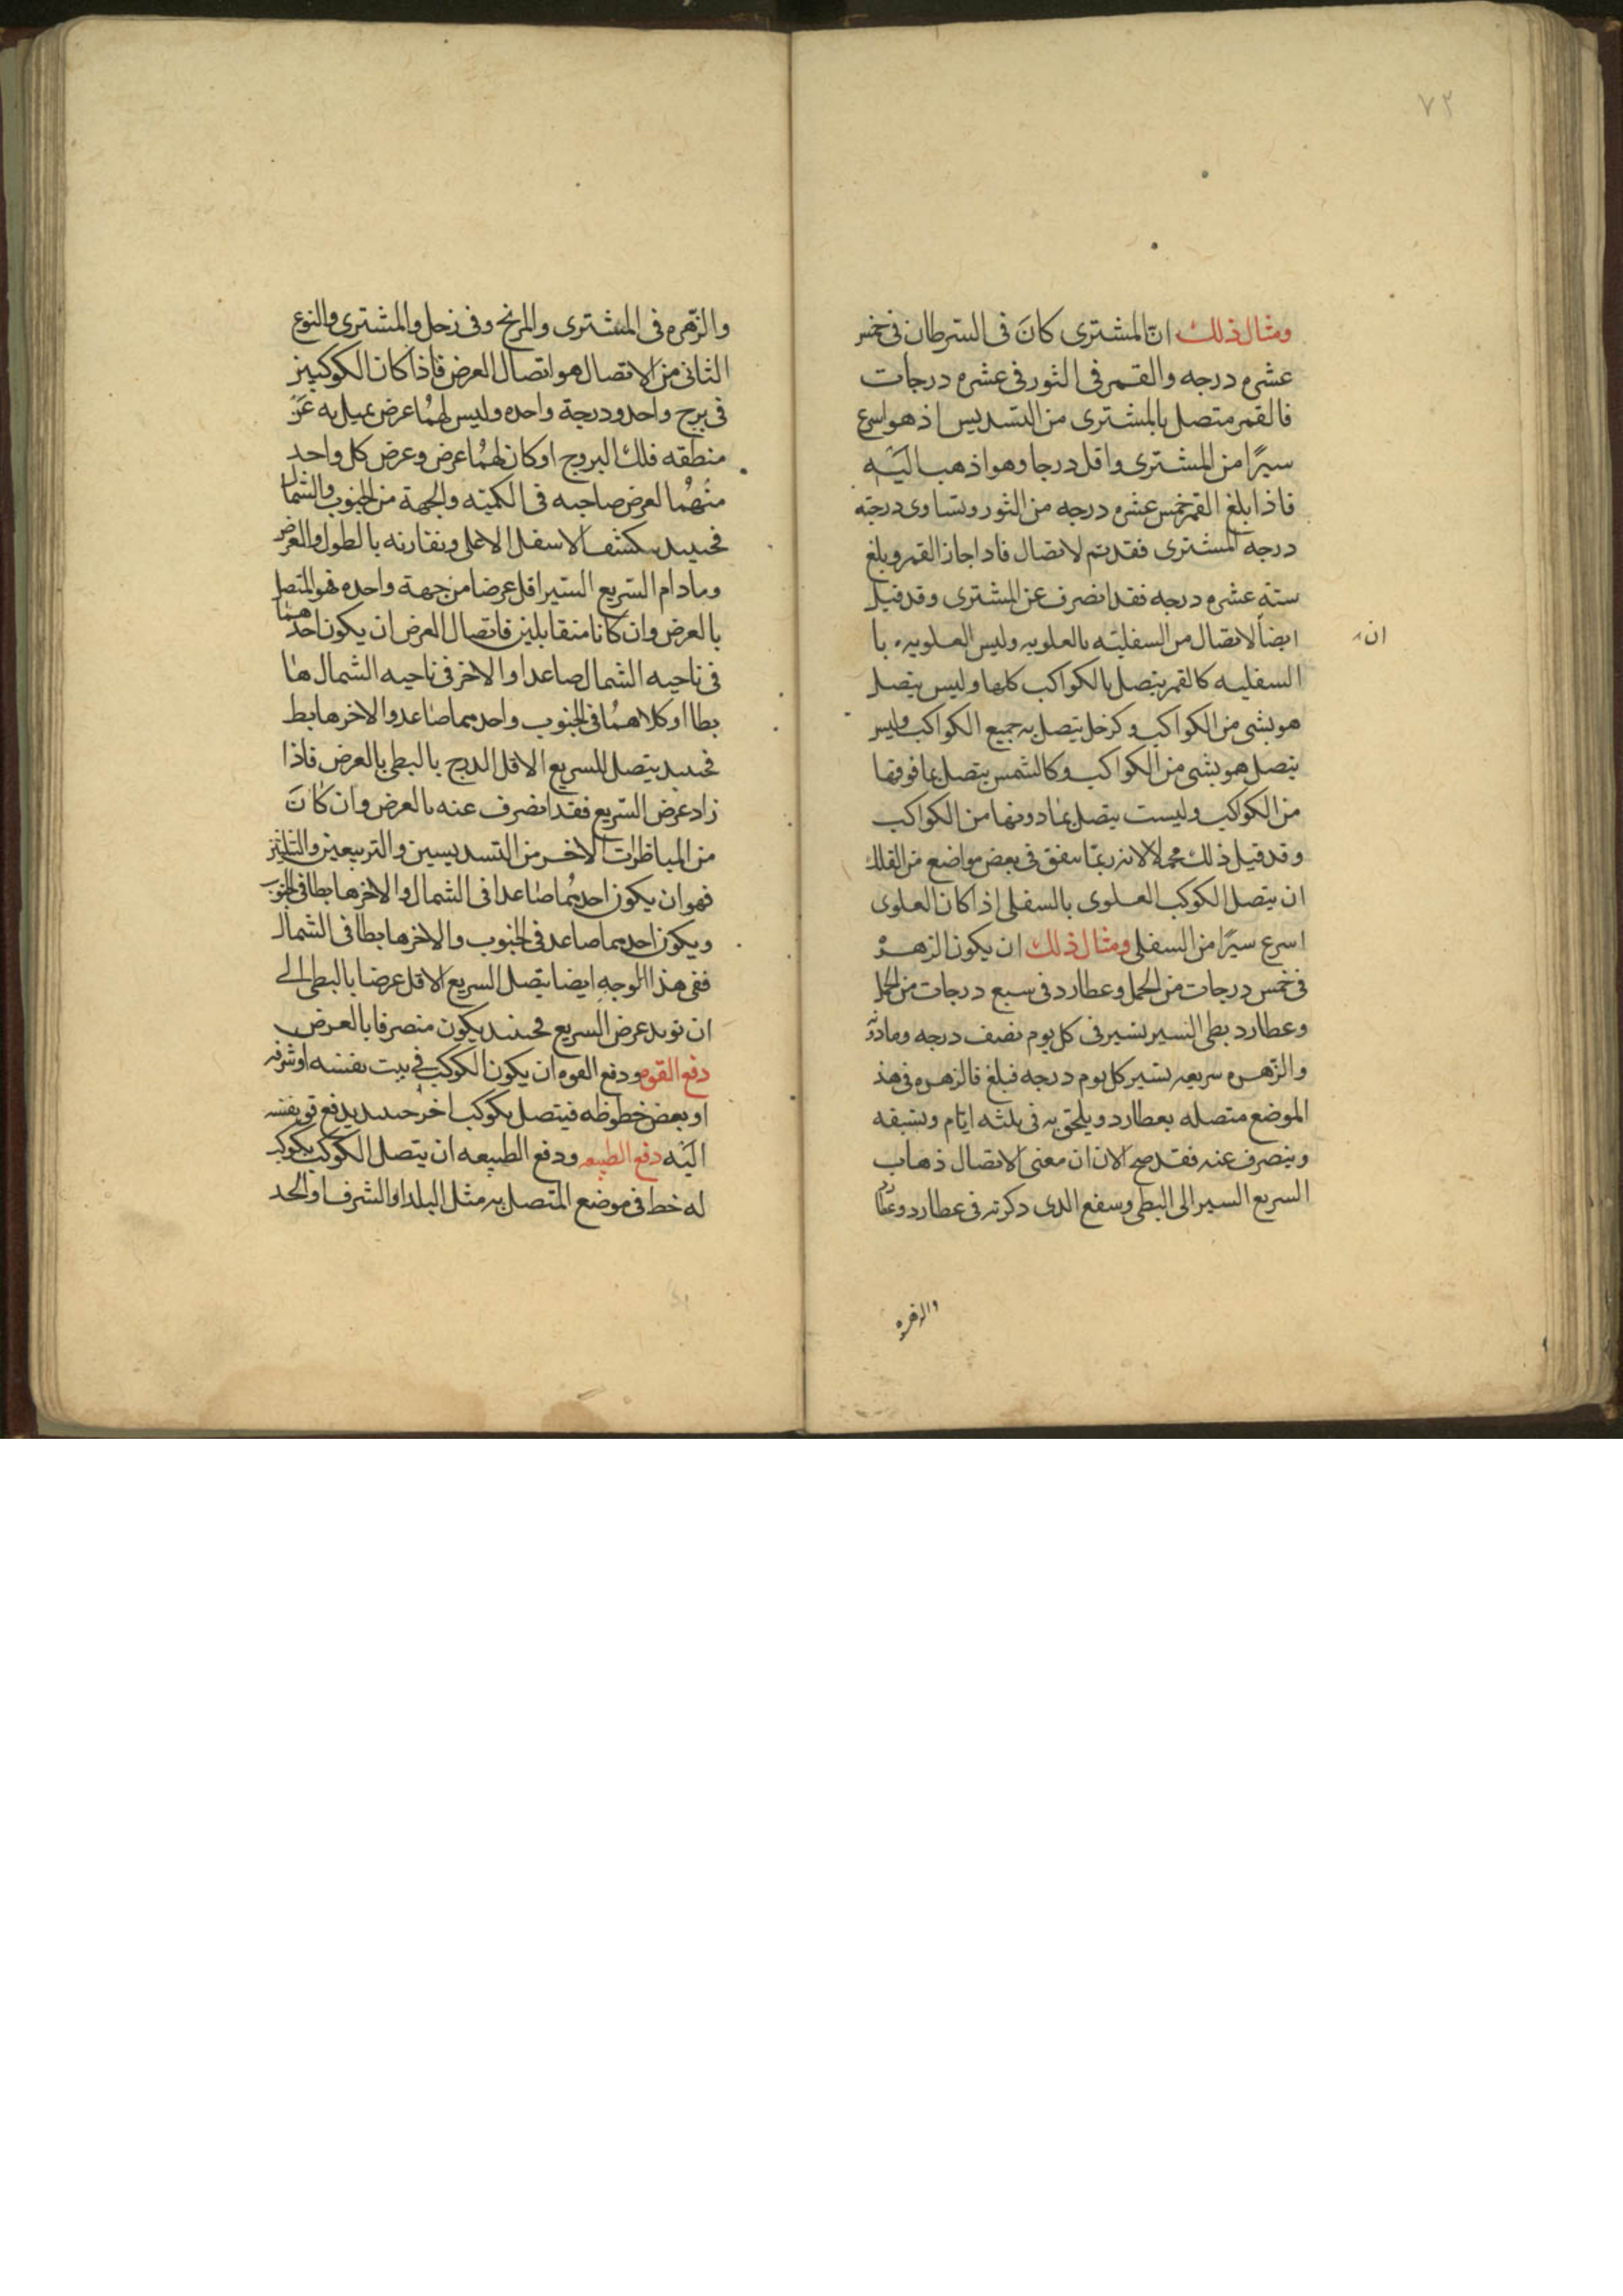 ٧٢
ومثال ذلك ان المشترى كانَ فى السرطان فى خمس
عشره درجه والقمر فى الثور فى عشره درجات
فالقمر متصل بالمشترى من التسديس اذ هو اسرع
سيرًا من المشترى واقل درجا وهو اذهب اليَه
فاذا بلغ القمر خمس عشره درجه من الثور وتساوى درجته
درجه المشترى فقد تم الاتصال فاذا جاز القمر وبلغ
سته عشره درجه فقد انصرف عن المشترى وقد قيل
ايضاً الاتصال من السفليّه بالعلويه وليس العلويه با
ان
السفليه كالقمر يتصل بالكواكب كلها وليس يتصل
هو بشى من الكواكب وكزحل يتصل به جميع الكواكب وليس
يتصل هو بشى من الكواكب وكالشمس يتصل بما فوقها
من الكواكب وليست يتصل بما دونها من الكواكب
وقد قيل ذلك محملا لانه ربمّا يتفق فى بعض مواضع من الفلك
ان يتصل الكوكب العلوى بالسفلى اذا كان العلوى
اسرع سيرًا من السفلى ومثال ذلك ان يكون الزهره
فى خمس درجات من الحمل وعطارد فى سبع درجات من الحمل
وعطارد بطى السير يسير فى كل يوم نصف درجه وما دونه
والزّهره سريعه تسير كل يوم درجه فبلغ فالزهره فى هذ
الموضع متصله بعطارد ويلحق به فى ثلثه ايّام وتسبقه
وينصرف عنه فقد صح الان ان معنى الاتصال ذهاب
السريع السير الى البطى وسفع الدى ذكرته فى عطارد وعطارد
والزهره
والزّهره فى المشترى والمريخ وفى زحل والمشترى والنوع
الثانى من الاتصال هو اتصال العرض فاذا كان الكوكبين
فى برج واحد ودرجة واحده وليس لهمُا عرض يميل به عَن
منطقه فلك البروج او كان لهمُا عرض وعرض كل واحد
منُهمُا لعرض صاحبه فى الكميته والجهة من الجنوب والشمال
فحينيد يكشف الاسفل الاعلى ويقارنه بالطول والعرض
وما دام السريع السير اقل عرضا من جهة واحده فهو المتصل
بالعرض وان كانا متقابلين فاتصال العرض ان يكون احدهما
فى ناحيه الشمال صاعدا والاخر فى ناحيه الشمال ها
بطا او كلاهمُا فى الجنوب واحدهما صاعد والاخر هابط
فحينيد يتصل السريع الاقل الدرج بالبطى بالعرض فاذا
زاد عرض السّريع فقد انصرف عنه بالعرض وان كانَ
من المناظرات الاخر من التسديسين والتربيعين والتثليثين
فهو ان يكون احدهمُا صاعدا فى الشمال والاخر هابطا فى الجنوب
ويكون احدهما صاعد فى الجنوب والاخر هابطا فى الشمال
ففى هذا الوجهِ ايضا يتصل السريع الاقل عرضا بالبطى الى
ان يزيد عرض السريع فحينيد يكون منصرفا بالعرض
دفع القوه ودفع القوه ان يكون الكوكب فى بيت نفسه او شرفه
او بعض حظوظه فيتصل بكوكب اخر حينيد يدفع قو نفسه
اليَه دفع الطبيعه ودفع الطبيعه ان يتصل الكوكب بكوكب
له خط فى موضع المتصل به مثل البلد او الشرف او الحد